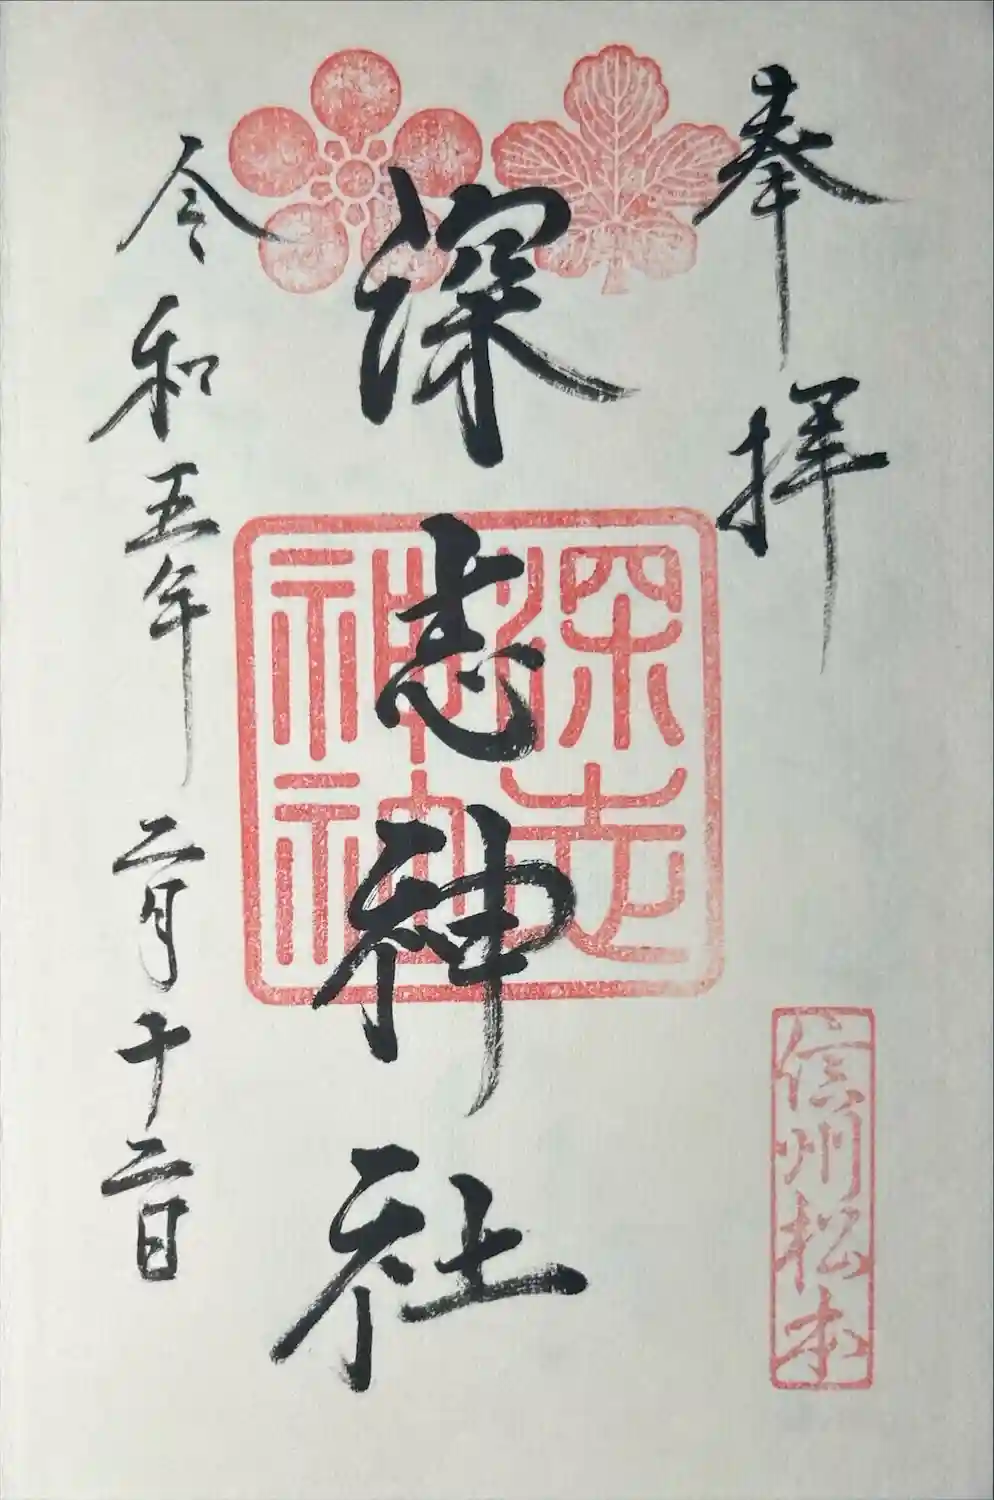 奉拝
信州松本
深志神社
深志
神社
令和五年二月十二日